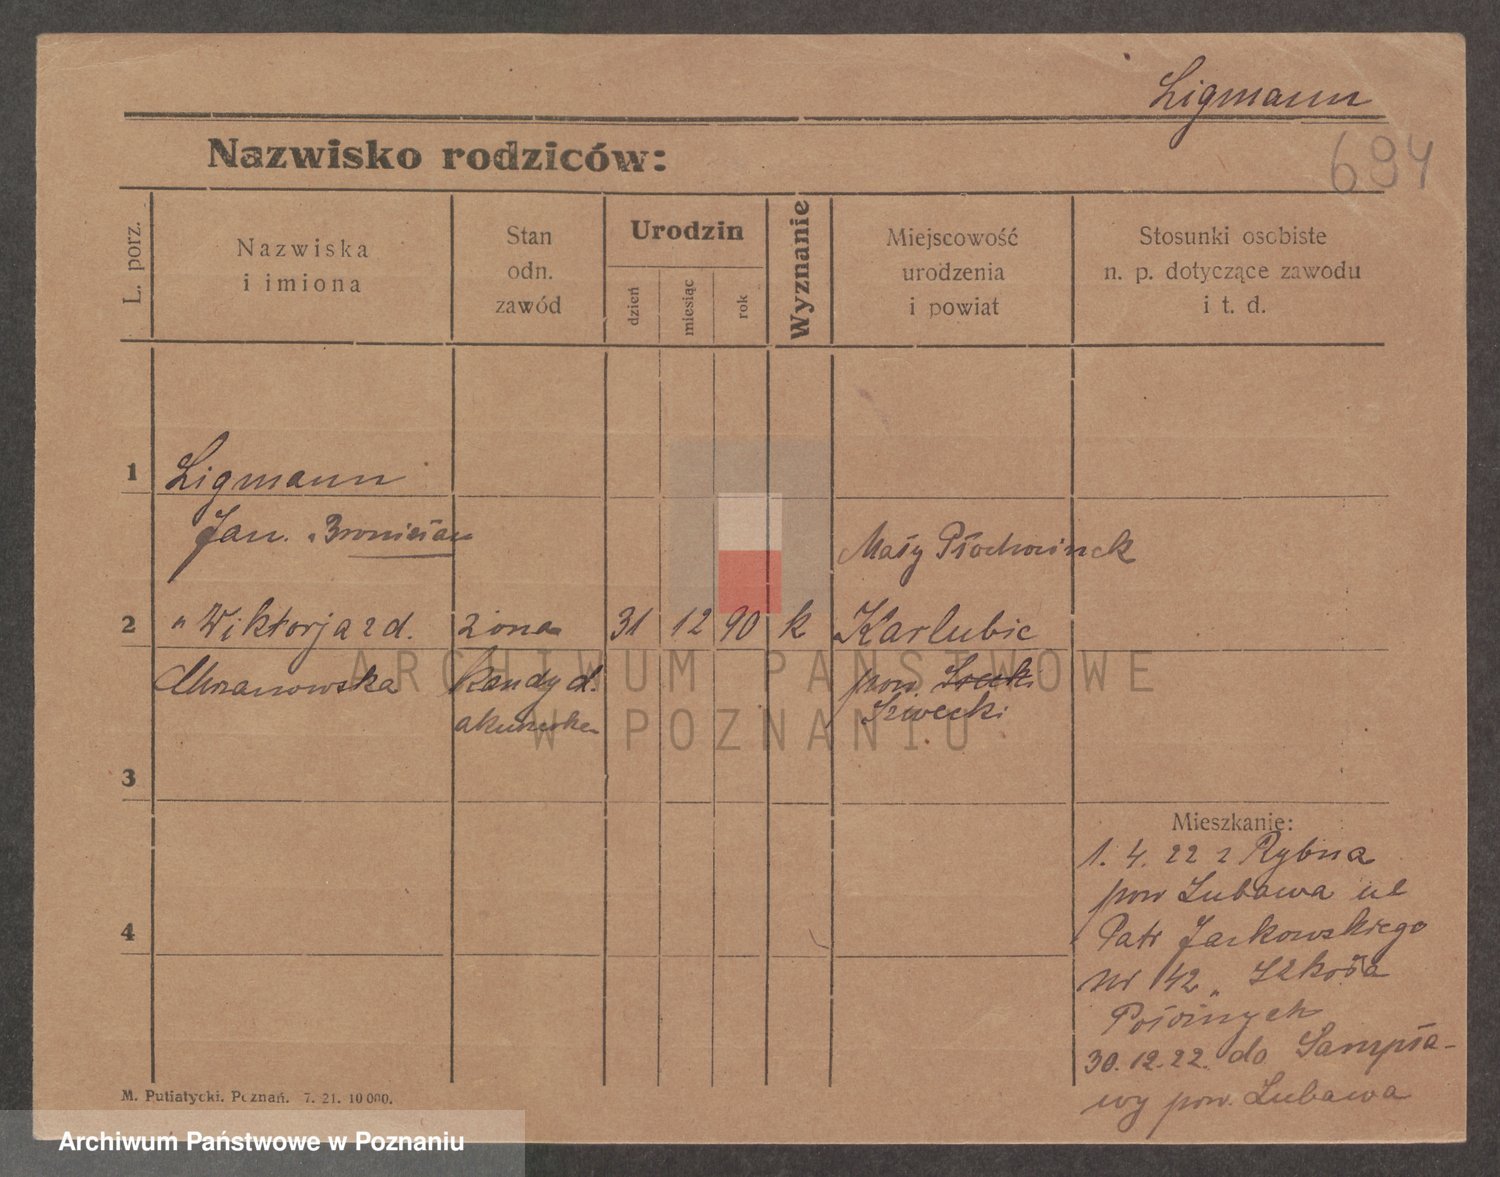 Ligmann
694
Nazwisko rodziców:
L. porz.
Nazwiska
i imiona
Stan
odn.
zawód
Urodzin
dzień
miesiąc
rok
Wyznanie
Miejscowość
urodzenia
i powiat
Stosunki osobiste
n. p. dotyczące zawodu
i t. d.
1 Ligmann
Jan. Bronisław
Mały Płochocinek
2 " Wiktorja z d. żona 31 12 90 k Karlubic
Chrzanowska kandyd. pow.
akuszerka Szwecki
3
Mieszkanie:
1. 4. 22 z Rybna
pow Lubawa ul
Patr Jackowskiego
4
Nr 42 " Szkoła
Położnych
30.12.22. do Sampła-
wy pow. Lubawa
M. Putiatycki. Poznań. 7. 21. 10 000.
ARCHIWUM PAŃSTWOWE
W POZNANIU
Archiwum Państwowe w Poznaniu